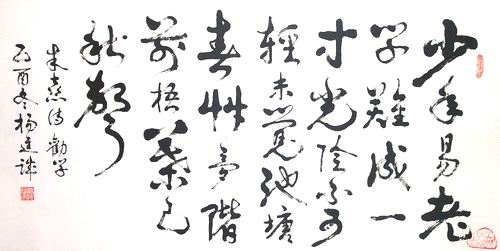 少年易老
学難成一
寸光陰不可
輕未覺池塘
春艸夢階
前梧葉已
秋聲
朱熹詩勸学
酉冬楊建